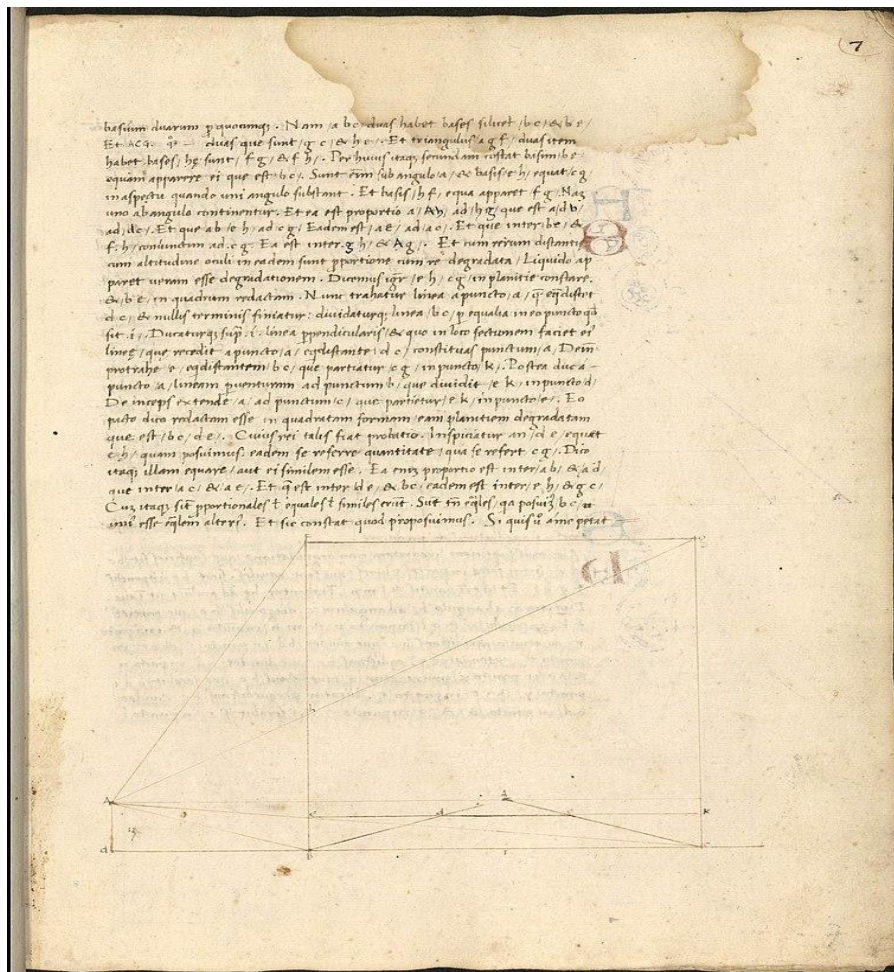 7
basium duarum p quocunq. Nam / a b c / duas habet bases silicet / b c / & b e /
Et duas que sunt / g c / & h e . Et triangulus / a g f / duas item
habet bases / hę sunt / f g / & f h / . Per huius itaq secundam constat basim / b e
equam apparere ei que est / b c / . Sunt eim sub angulo / a / & basis / e h / equat / c g /
in aspectu quando uni angulo substant . Et basis / h f / equa apparet / f g . Naz
uno ab angulo continentur . Et ea est proportio a / ah / ad / h g / que est / a / d b /
ad / d c / . Et que ab / e h / ad c g / Eadem est / a e / ad / a c / . Et que inter / b e / &
f h / coniunctum ad . c g . Ea est inter . g h / & A g / . Et cum rerum distantie
cum altitudine oculi in eadem sunt pportione cum re degradata / Liquido ap
paret ueram esse degradationem . Dicemus igr / e h / c g / in planitie constare .
& / b e / in quadrum redactam . Nunc trahatur linea apuncto / a / eqdistet
d c / & nullis terminis finiatur : diuidaturq linea / b c / p equalia in eo puncto
sit . i / . Ducaturq sup . i . linea ppendicularis / & quo in loco sectionem faciet
lineę / que recedit apuncto / a / eqdistante / d c / constituas punctum / a / Dein
protrahe / e / eqdistantem / b c / que partiatur / c g / in puncto / k / . Postea duc a -
puncto / a / lineam puenturam ad punctum / b / que diuidit / e k / in puncto / d /
De inceps extende / a / ad punctum / c / que partietur / e k / in puncto / e / . Eo
pacto dico redactam esse in quadratam formam / eam planitiem degradatam
que est / b c / d e / . Cuius rei talis fiat probatio . Inspiciatur an / d e / equet
e h / quam posuimus eadem se referre quantitate / qua se refert c g / . Dico
itaq illam equare / aut ei similem esse . Ea enim proportio est inter / a b / & a d /
que inter / a c / & a e / . Et est inter / d e / & b c / eadem est inter / e h / & g c /
Cuz itaq sint pportionales equales similes erunt . Sut eqles / qa posuiz b c /
esse eqlem alteri . Et sic constat quod proposuimus . Si quis petat
F
G
h
A
A
e
d
e
k
d
b
i
c